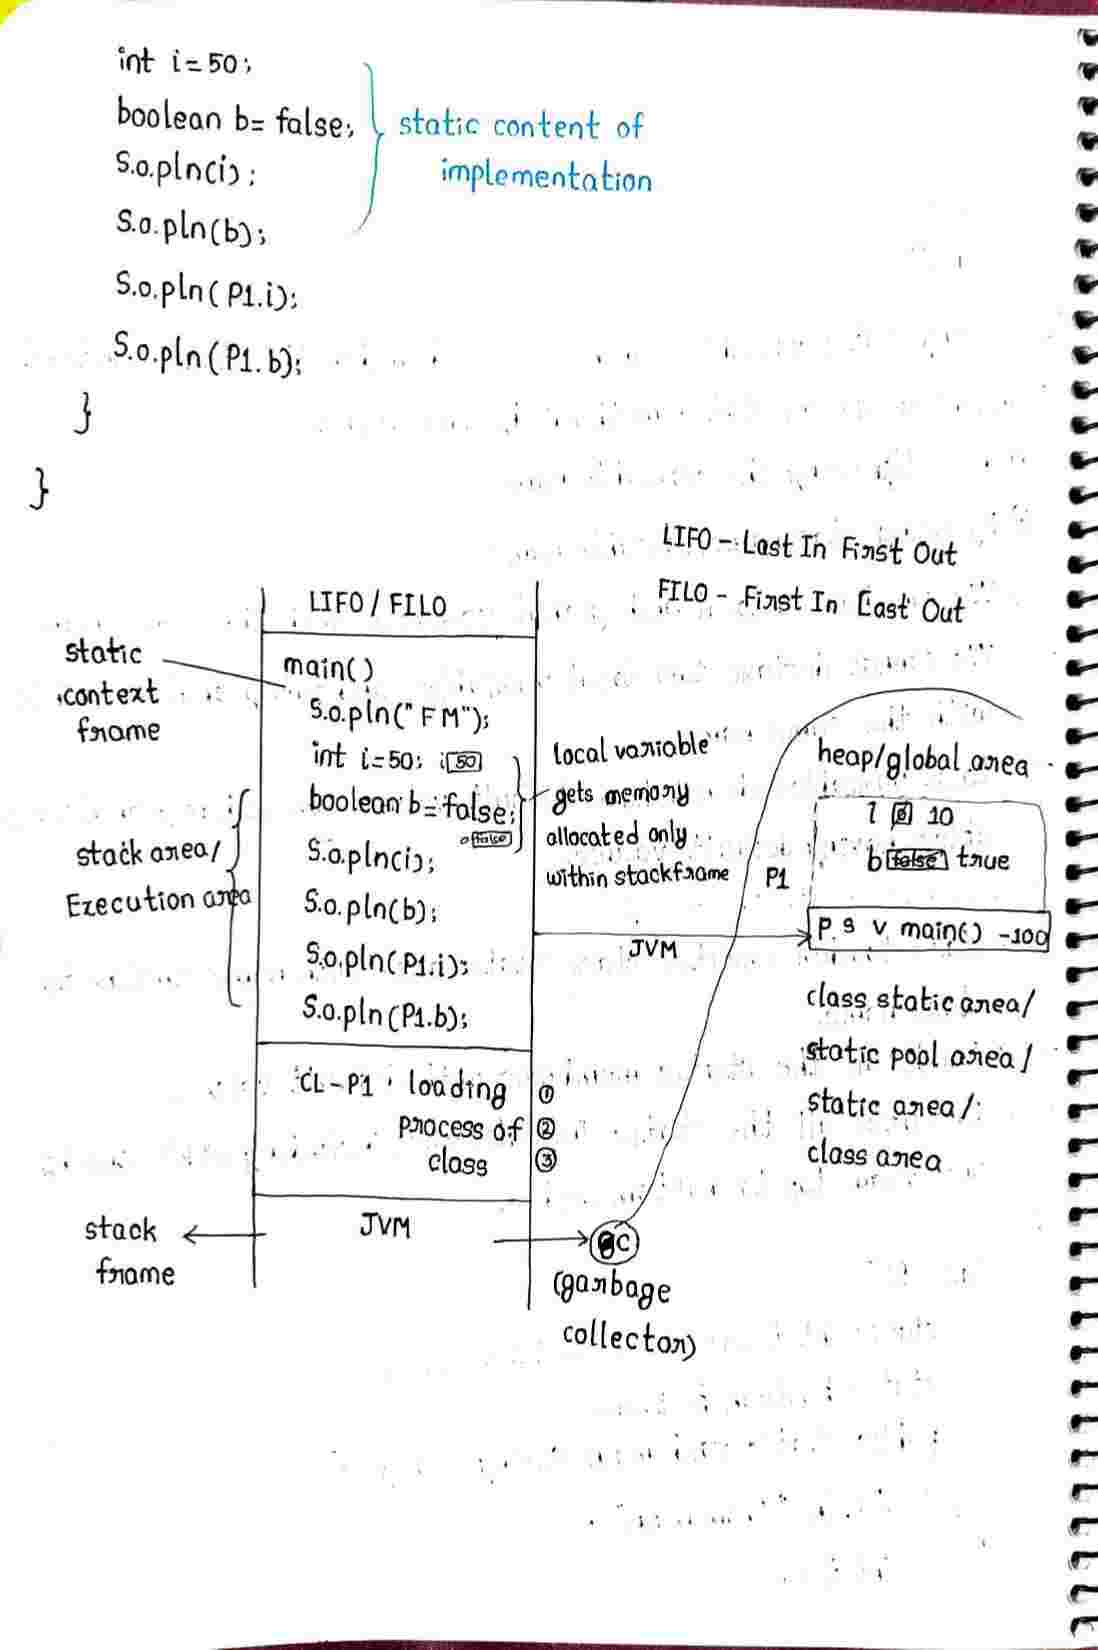 int i=50;
boolean b= false;
S.o.pln(i);
S.o.pln(b);
static content of
implementation
S.o.pln(P1.i);
S.o.pln(P1.b);
}
}
LIFO - Last In First Out
FILO - First In Last Out
LIFO / FILO
static
context
frame
main()
S.o.pln("FM");
int i=50; i 50
boolean b=false;
false
S.o.pln(i);
S.o.pln(b);
S.o.pln(P1.i);
S.o.pln(P1.b);
stack area/
Execution area
local variable
gets memory
allocated only
within stackframe
heap/global area
P1
0 10
b false true
JVM
P S V main() -100
class static area/
static pool area/
static area/
class area
CL-P1 loading
process of
class
①
②
③
stack
frame
JVM
GC
(garbage
collector)